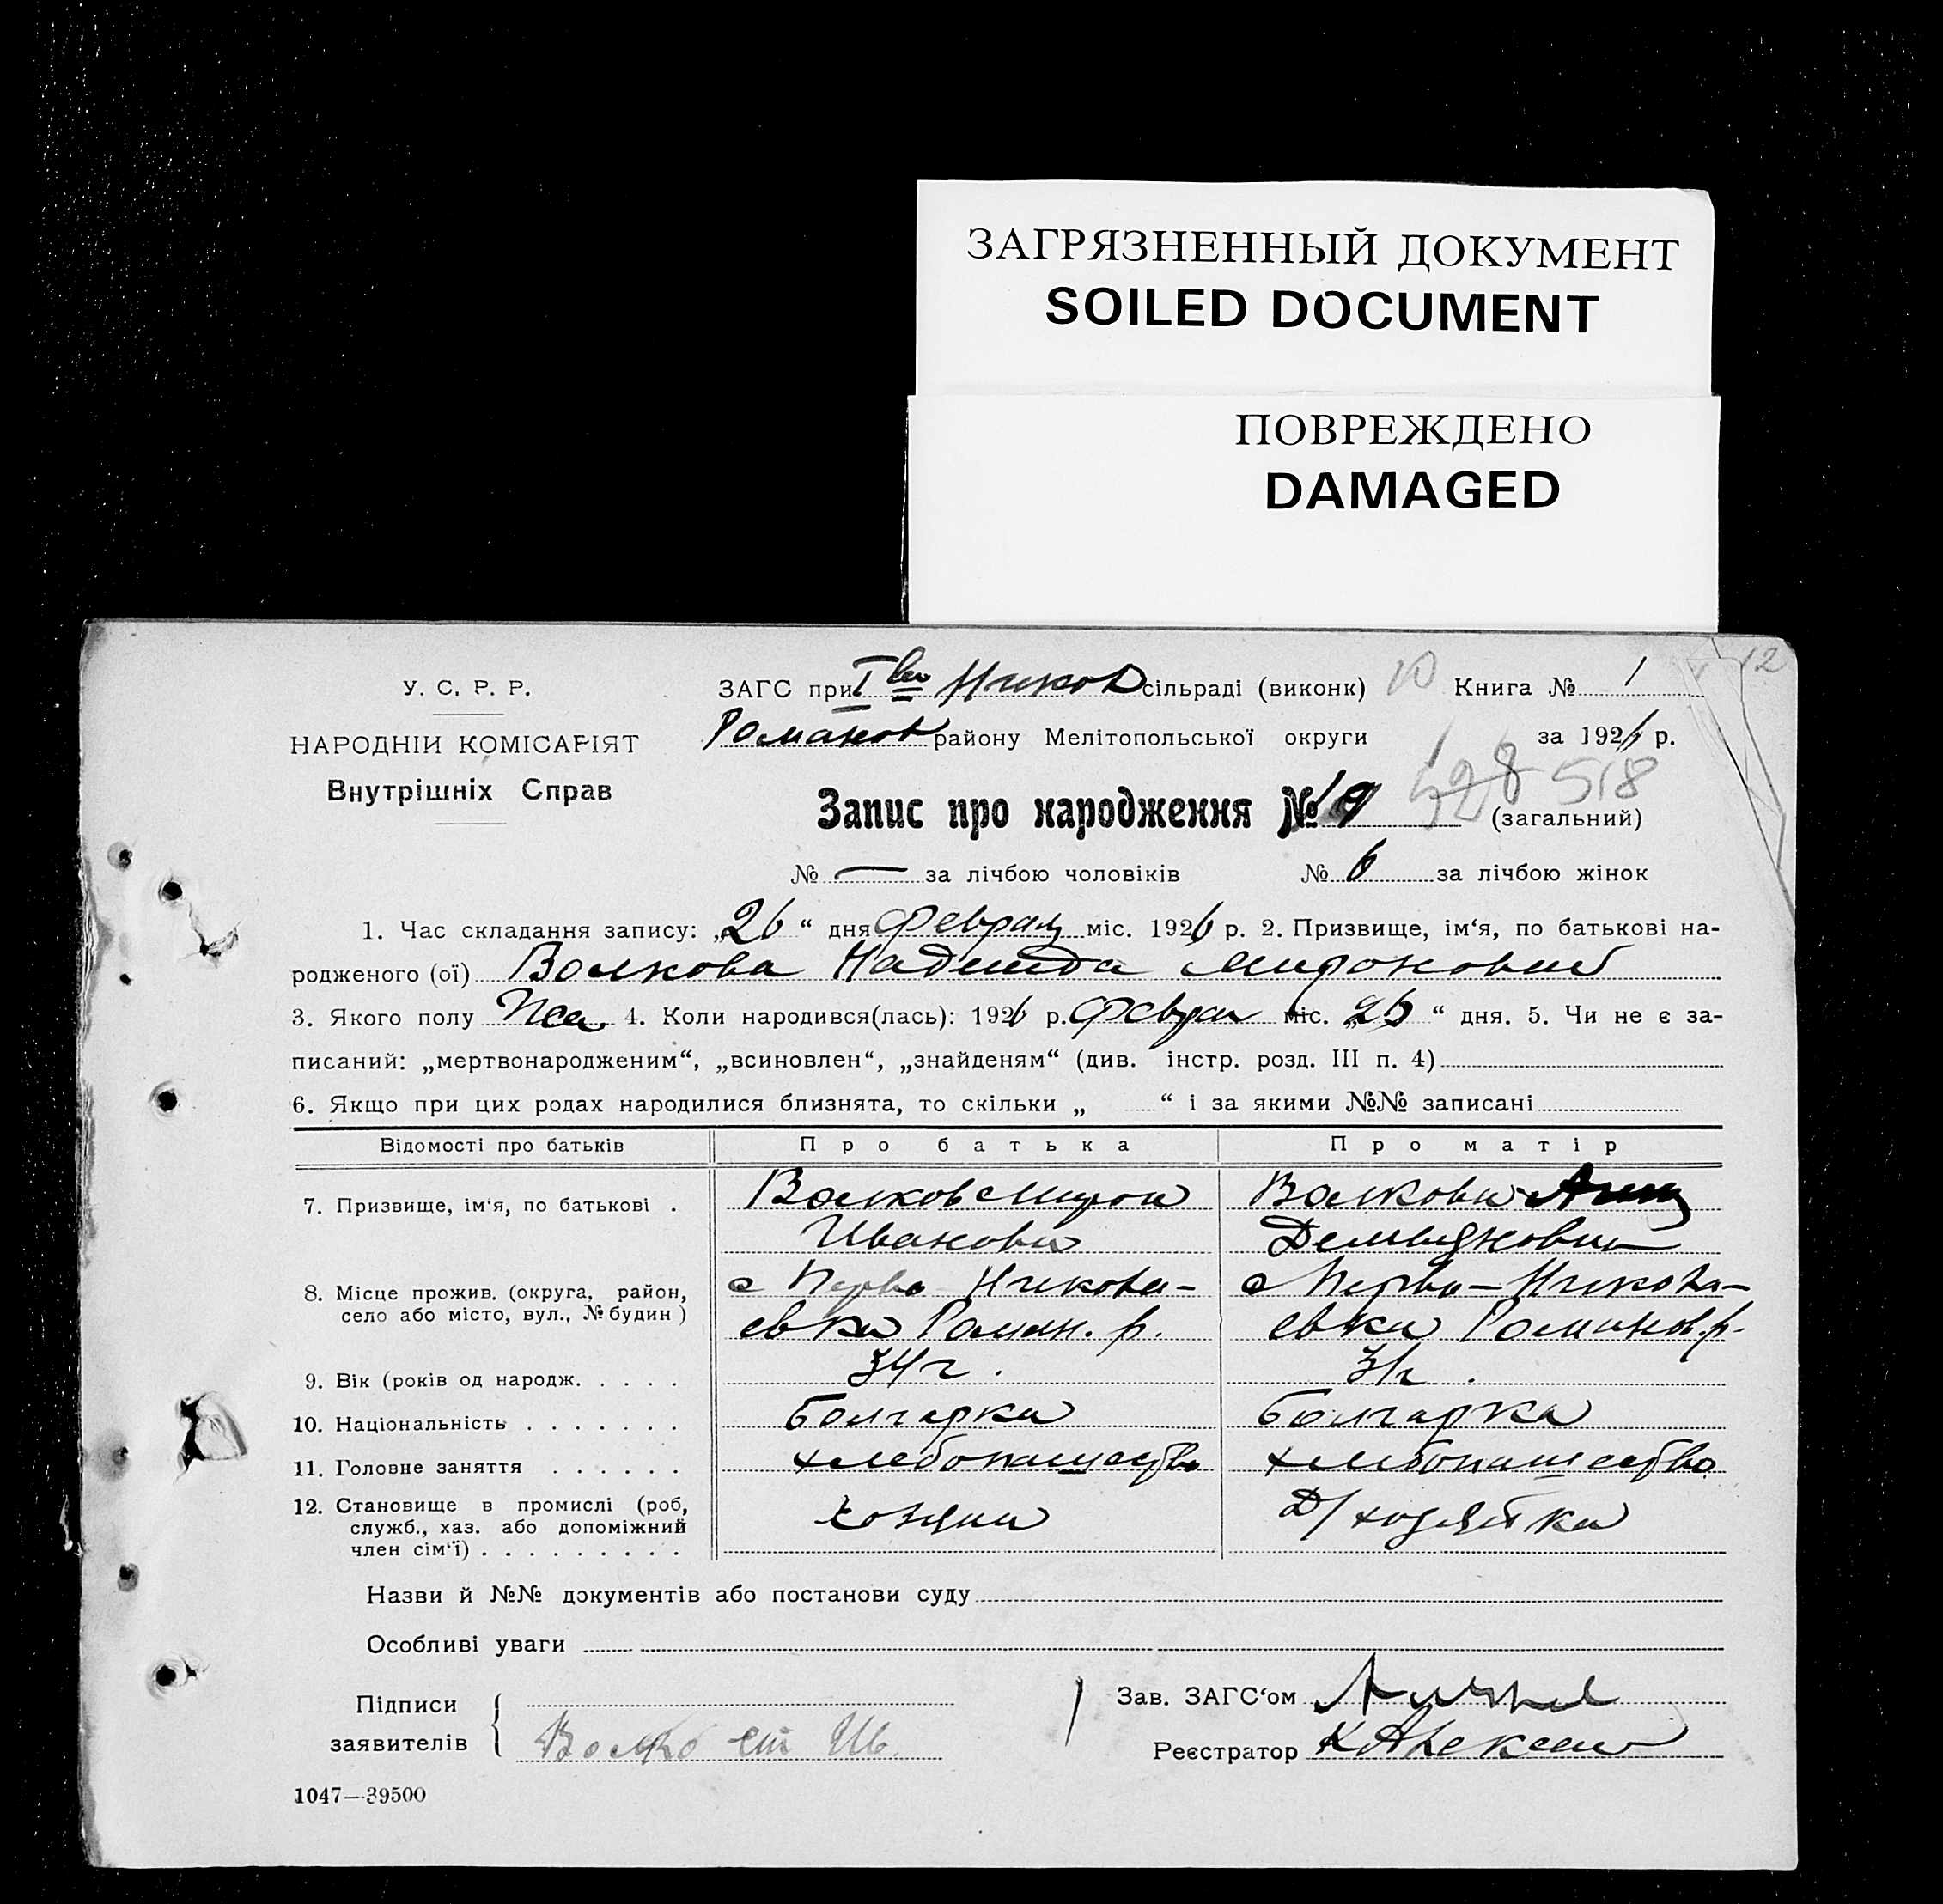 ЗАГРЯЗНЕННЫЙ ДОКУМЕНТ
SOILED DOCUMENT
ПОВРЕЖДЕНО
DAMAGED
12
У. С. Р. Р.
НАРОДНІЙ КОМІСАРІЯТ
Внутрішніх Справ
ЗАГС при сільраді (виконк) Книга № 1
Романов району Мелітопольської округи за 1926 р.
Запис про народження № 428 518 (загальний)
№ — за лічбою чоловіків № 6 за лічбою жінок
1. Час складання запису: „26“ дня міс. 1926 р. 2. Призвище, ім‘я, по батькові на-
родженого (ої) Волкова Надежда
3. Якого полу 4. Коли народився(лась): 1926 р. міс. “ дня. 5. Чи не є за-
писаний: „мертвонародженим“, „всиновлен“, „знайденям“ (див. інстр. розд. III п. 4)
6. Якщо при цих родах народилися близнята, то скільки „ “ і за якими №№ записані
Відомості про батьків Про батька Про матір
7. Призвище, ім‘я, по батькові . Волков Мирон Волкова
8. Місце прожив. (округа, район, с Перво Никола- с Перво-Никола-
село або місто, вул., № будин) евка Роман. р. евка Романов. р.
9. Вік (років од народж. . . . . 34 г. 31 г.
10. Національність . . . . . . . болгарка болгарка
11. Головне заняття . . . . . . хлебопашество хлебопашество
12. Становище в промислі (роб,
служб., хаз. або допоміжний Д/хозяйка
член сім‘ї) . . . . . . . . .
Назви й №№ документів або постанови суду
Особливі уваги
Підписи
заявителів
Зав. ЗАГС‘ом
Реєстратор
1047—39500